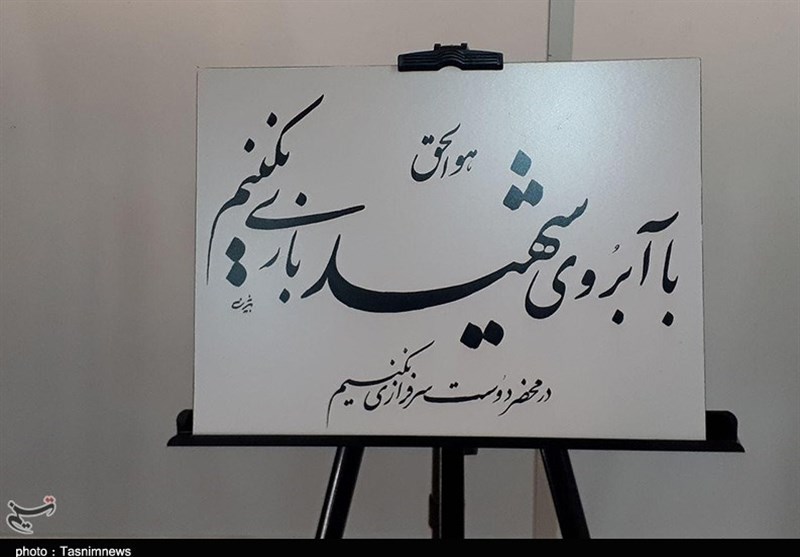 هو الحق
با آبرُوی شهید بازی نکنیم
در محضر دُوست سرفرازی نکنیم
تسنیم
photo : Tasnimnews